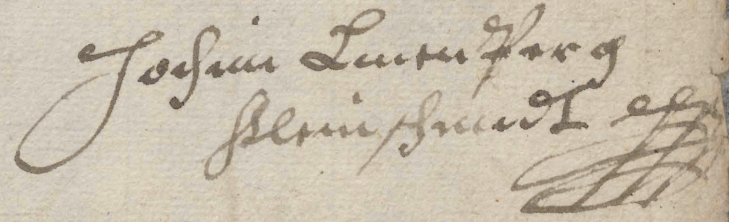 Jochim LönenPerg
Kleinschmidt